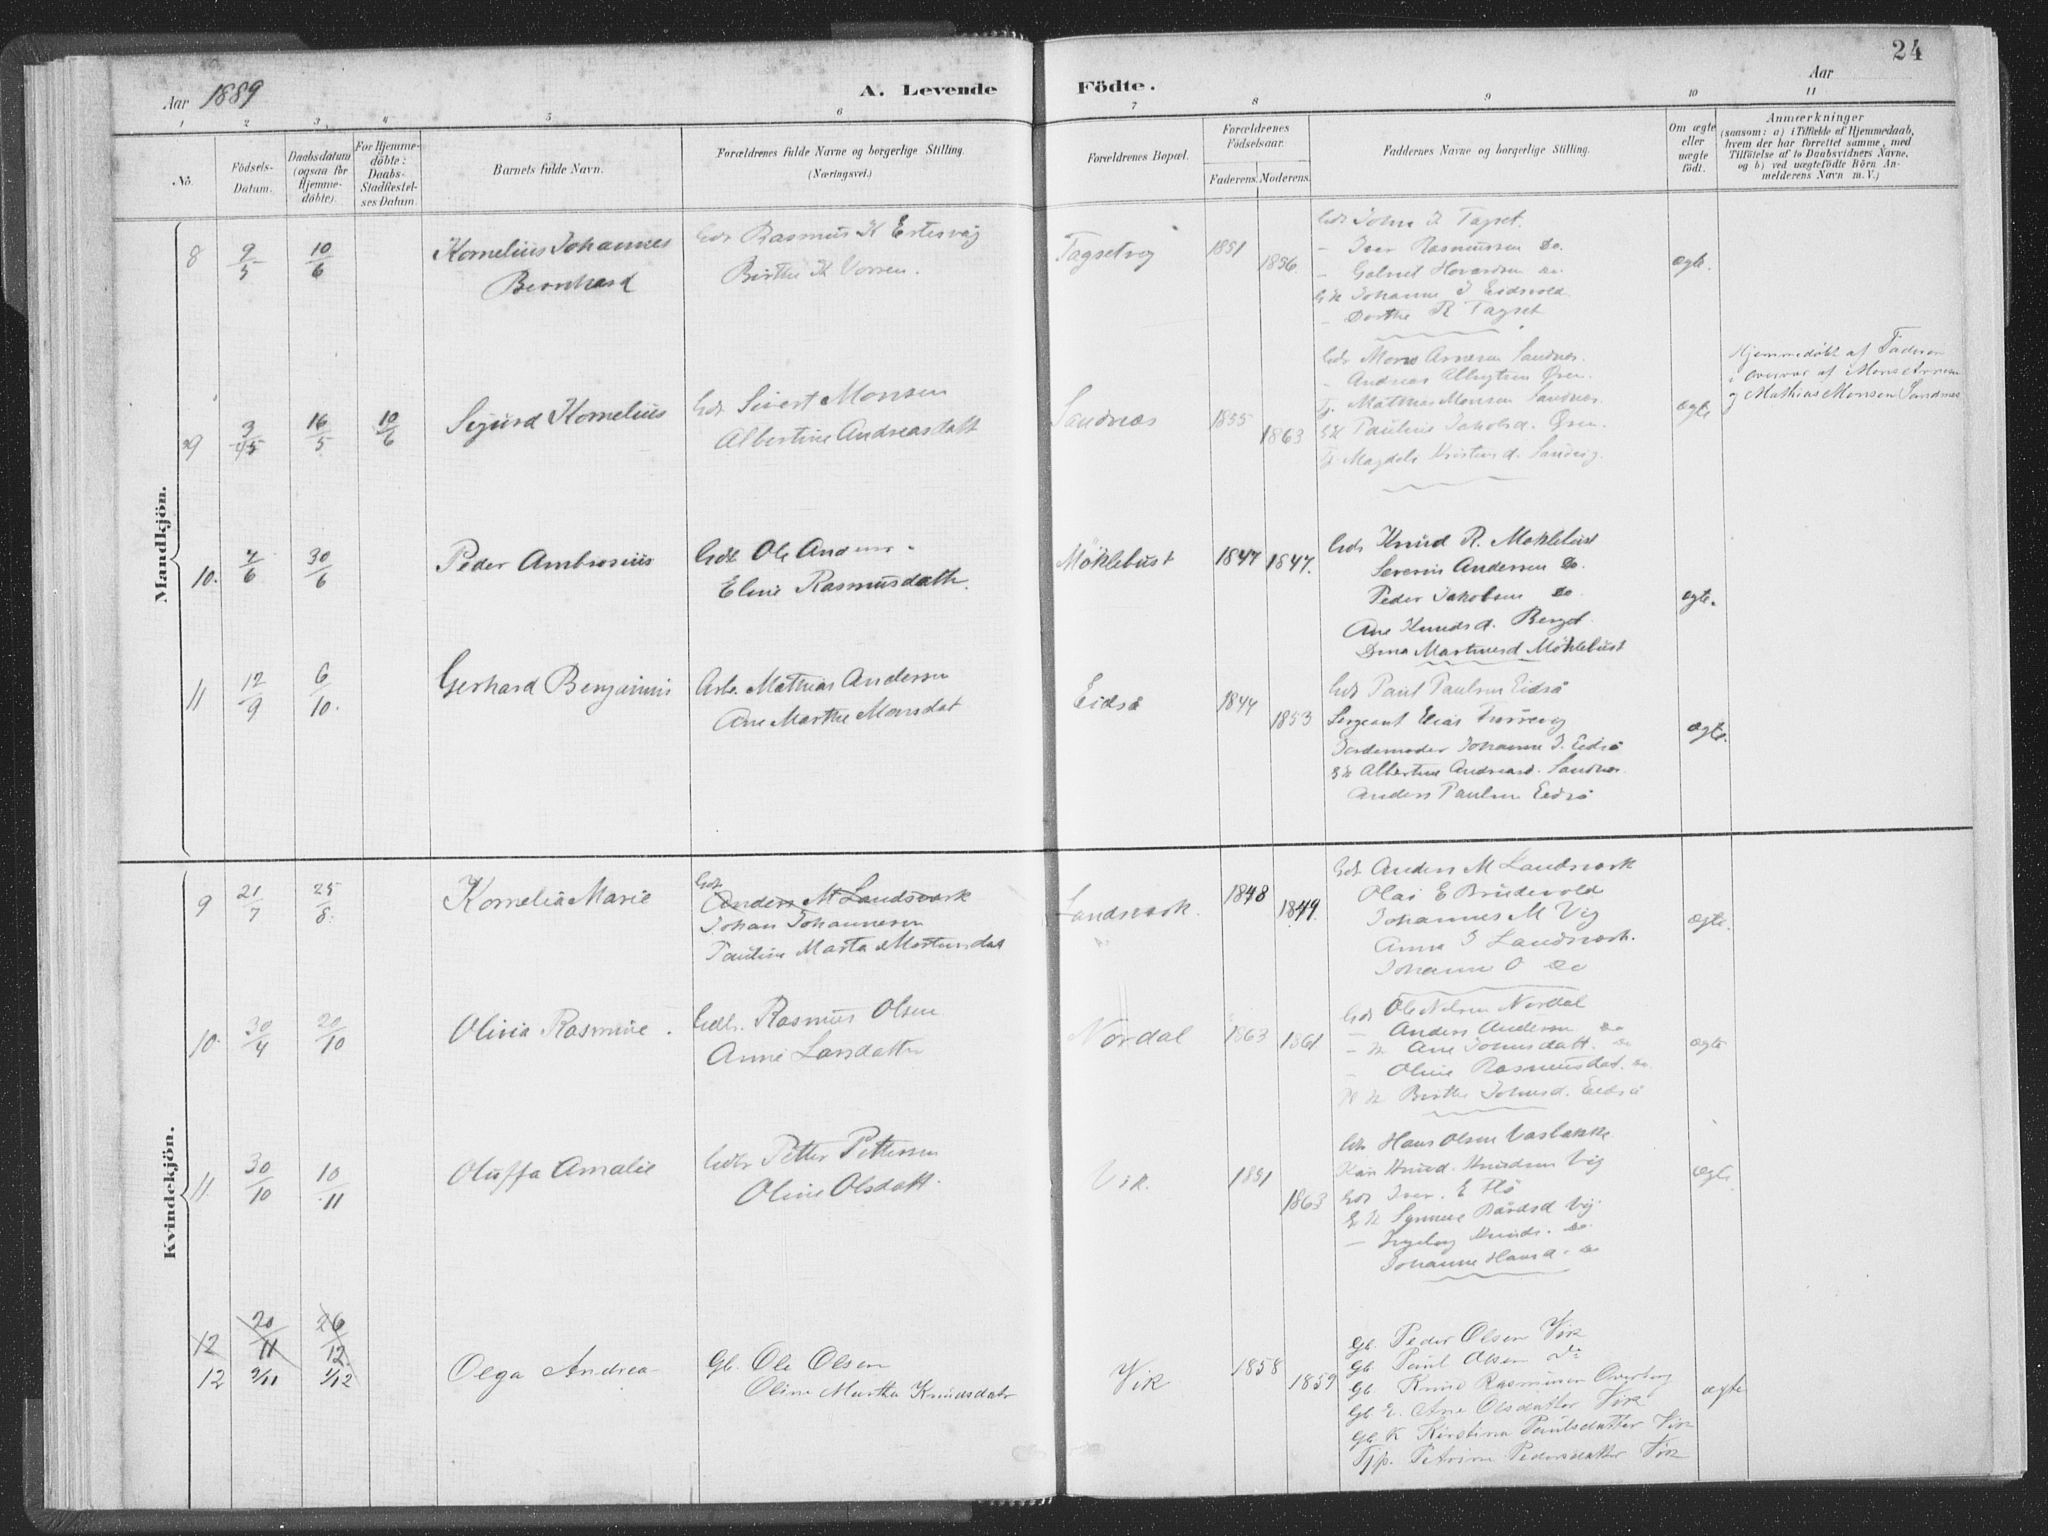 24
Aar 1889
A. Levende Födte.
Aar
1 2 3 4 5 6 7 8 9 10 11
No.
Födsels-Datum.
Daabsdatum (ogsaa for Hjemme-döbte).
For Hjemme-döbte: Daabs-Stadfæstel-ses Datum.
Barnets fulde Navn.
Forældrenes fulde Navne og borgerlige Stilling.
(Næringsvei.)
Forældrenes Bopæl.
Forældrenes Födselsaar.
Faderens. Moderens.
Faddernes Navne og borgerlige Stilling.
Om ægte eller uægte födt.
Anmærkninger
(saasom: a) i Tilfælde af Hjemmedaab,
hvem der har forrettet samme, med
Tilföielse af to Daabsvidners Navne,
og b) ved uægtefödte Börn An-
melderens Navn m.V.)
Mandkjön.
8 9/5 10/6
Kornelius Johannes
Bernhard
Gdr Rasmus K Ertesvåg
Birthe K Vorren.
Tagsetvig 1851 1856.
Gdr John I Tagset.
- Iver Rasmussen Do.
- Gabriel Hovardsen do
Johanne J Eidsvold
- Dorthe R Tagset
ægte.
9 3/5 16/5 10/6
Sigurd Kornelius
Gdr Sivert Monsen
Albertine Andreasdatt
Sandnæs 1855 1863
Gdr Mons Arnesen Sandnes.
- Andreas Øren.
Tj. Mathias Monsen Sandnæs.
Pauline Jakobsd. Øren.
ægte
Hjemmedøbt af Faderen
i overvær af Mons Arnesen
og Mathias Monsen Sandnes
10. 4/6 30/6
Peder Ambrosius
Gdr Ole Anders.
Eline Rasmusdatt.
Möklebust 1847 1847.
Gdr Knud R. Möklebust
Severin Andersen Do.
Peder Jakobsen Do.
Ane Knudsd. Berget
Möklebust
ægte.
11 12/9 6/10.
Gerhard Benjamin
Arb. Mathias Andersen
Ane Marthe Monsdat
Eidså 1844 1853
Gdr Paul Paulsen Eidså
Sergeant Elias
Jordemoder Johanne J. Eidså
Albertine Andreasd. Sandnes.
Anders Paulsen Eidså
ægte.
Kvindekjön.
9 21/7 25/8.
Kornelia Marie
Gdr
Anders M Landsværk
Johan Johannesen
Pauline Marta Martinsdat
Landsværk. 1848 1849.
Gdr Anders M Landsværk
Olai E Brudevold
Johannes M Vig
Anna J Landsværk.
Johanne O do
ægte.
10. 30/4 20/10
Olivia Rasmine.
Gdbr. Rasmus Olsen
Anne Larsdatter
Nordal 1863 1861
Gdr Ole Nilsen Nordal
- Anders Andersen do
- K Ane Johnsdatt. do
- Oline Rasmusdat. do.
Birthe Johnsd. Eidså
ægte
11. 30/10 10/11
Oluffa Amalie
Gdbr Petter Pettersen
Oline Olsdatt.
Vik. 1851 1863
Gdr Hans Olsen Vasbakke
Knud Knudsen Vig
Gdr Iver. E Flö
Synneve Bårdsd Vig
- Ingeborg Knuds. Do.
Johanne Hansd. do
ægte.
12 20/11 26/12.
12 9/11 1/12
Olga Andrea
Gb. Ole Olsen
Oline Martha Knudsdatr
Vik 1858 1859
Gb. Peder Olsen Vik
Gb. Paul Olsen Do
Gb Knud Rasmussen Overberg
Gb. E. Ane Olsdatter Vik
Gb. K Kirstina Paulsdatter Vik
Tjp. Petrine Pedersdatter Vik
ægte